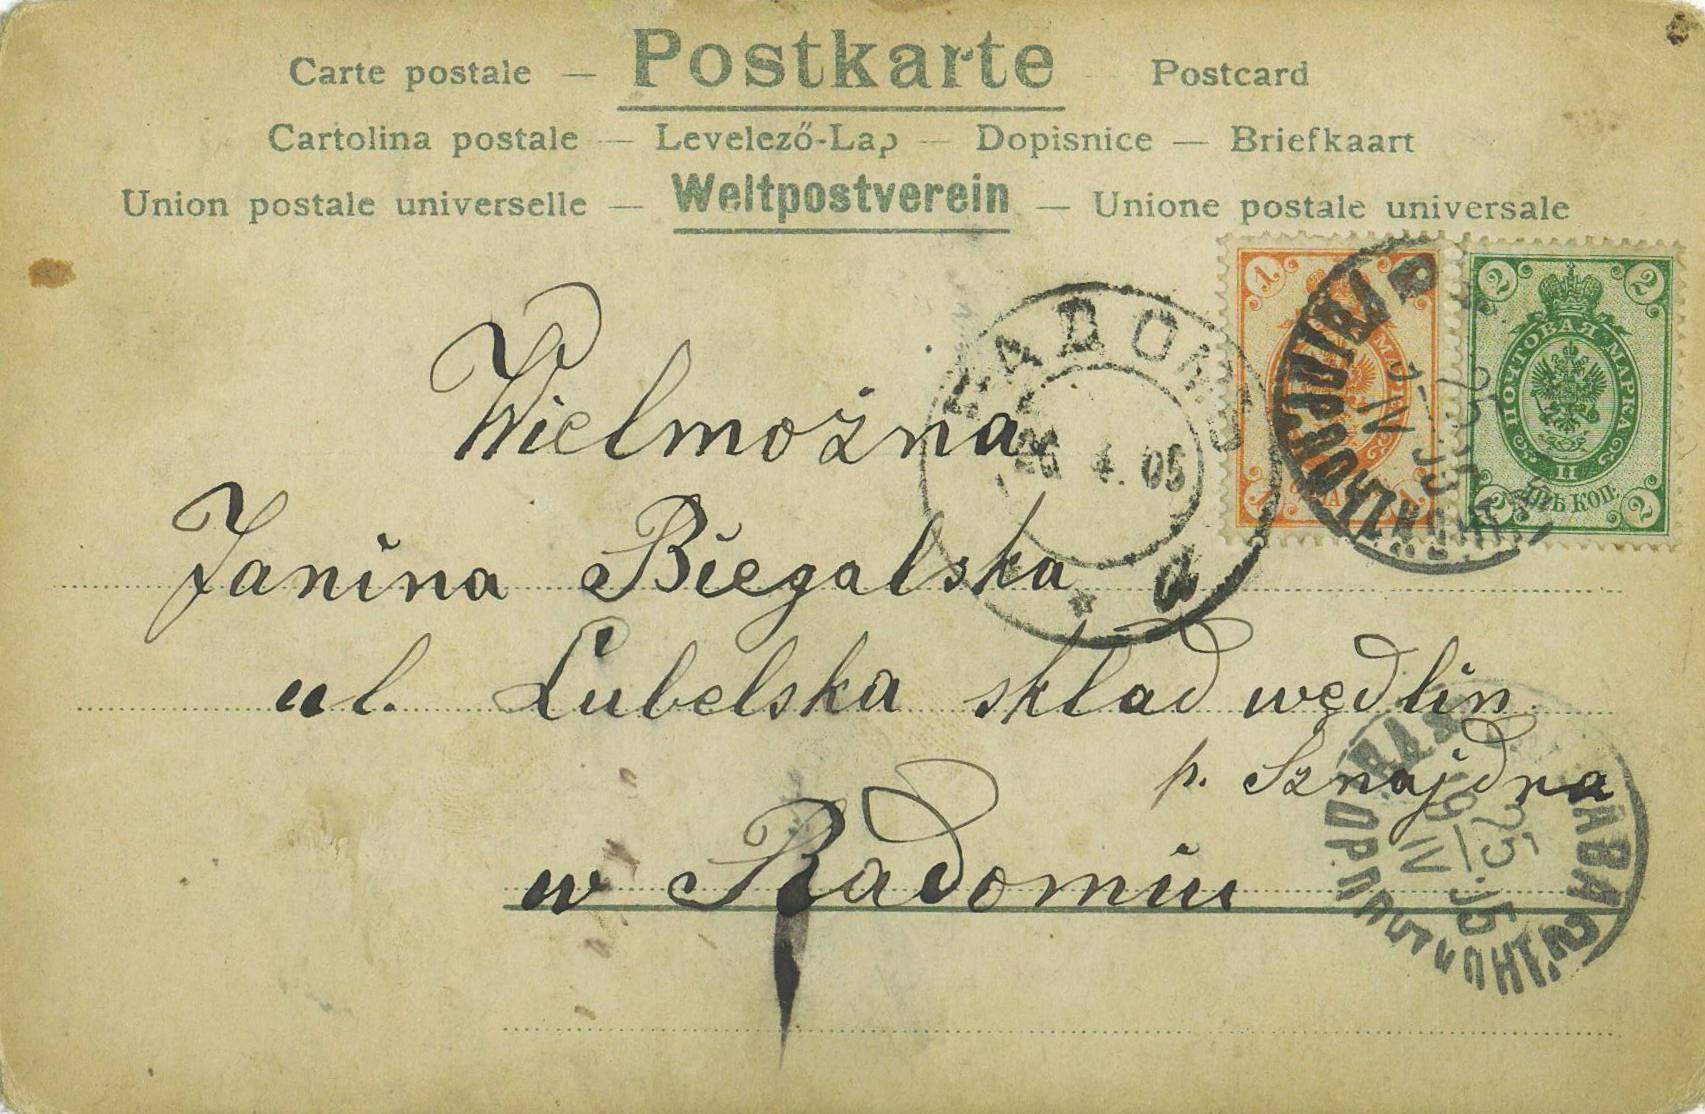 Carte postale — Postkarte — Postcard
Cartolina postale — Levelező-Lap — Dopisnice — Briefkaart
Union postale universelle — Weltpostverein — Unione postale universale
1 1 1
2 2 2 2
ПОЧТОВАЯ МАРКА
II
ДВѢ КОП.
РАДОМЪ
26 4. 05
Wielmożna
Janina Biegalska
ul. Lubelska skład wędlin
p. Sznajdra
w Radomiu
25
IV